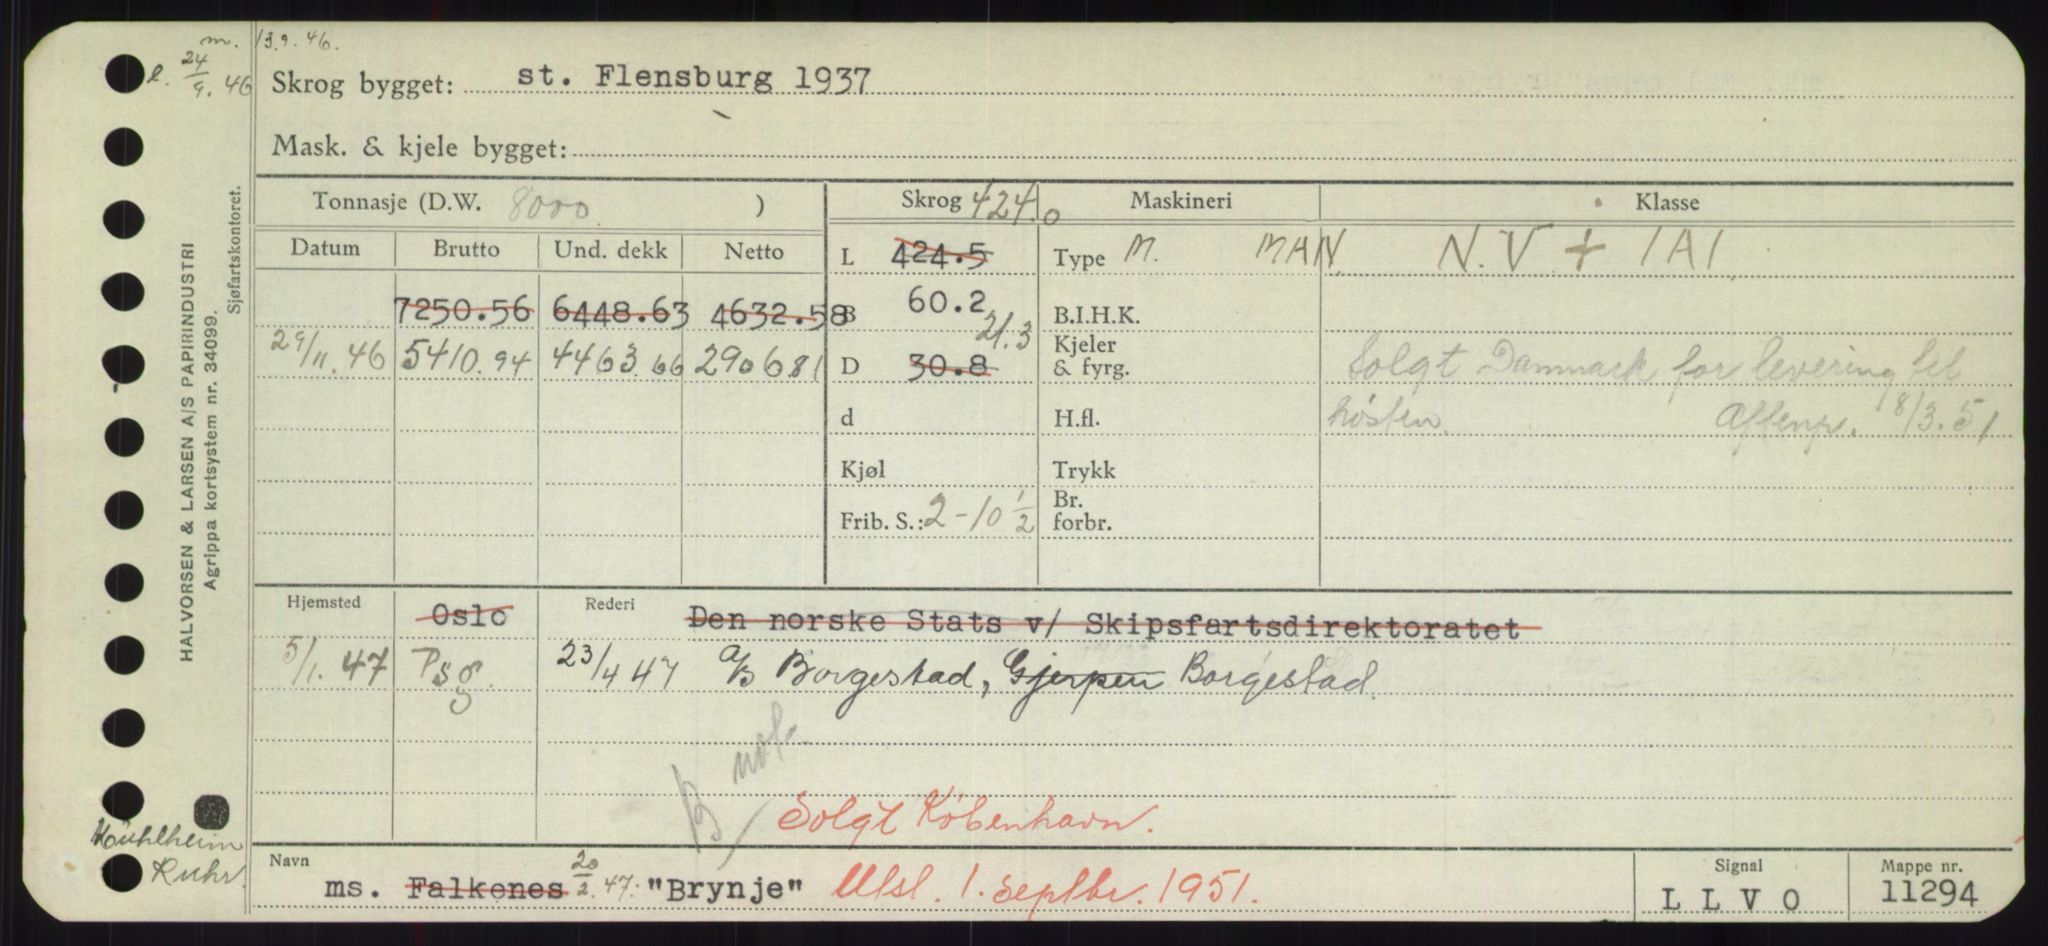 m. 13.9.46.
l. 24/9. 46
Skrog bygget: st. Flensburg 1937
Mask. & kjele bygget:
HALVORSEN & LARSEN A/S PAPIRINDUSTRI
Agrippa kortsystem nr. 34099.
Sjøfartskontoret.
Tonnasje (D.W. 8000 ) Skrog 424.0 Maskineri Klasse
Datum Brutto Und. dekk Netto L 424.5 Type M. MAN. N.V + 1A1.
7250.56 6448.63 4632.58 B 60.2 B.I.H.K.
21.3
29/11.46 5410.94 4463.66 2906.81 D 30.8 Kjeler & fyrg. Solgt Danmark for levering til
d H.fl. høsten. Aftenp. 8/3.51
Kjøl Trykk
Frib. S.: 2-10 1/2 Br. forbr.
Hjemsted Oslo Rederi Den norske Stats v/ Skipsfartsdirektoratet
5/1.47 Psg. 23/4 47 A/S Borgestad, Gjerpen Borgestad.
B
Solgt København.
Ruhr.
Navn ms. Falkenes 20/2.47. "Brynje" Utsl. 1. septbr. 1951. Signal LLVO Mappe nr. 11294